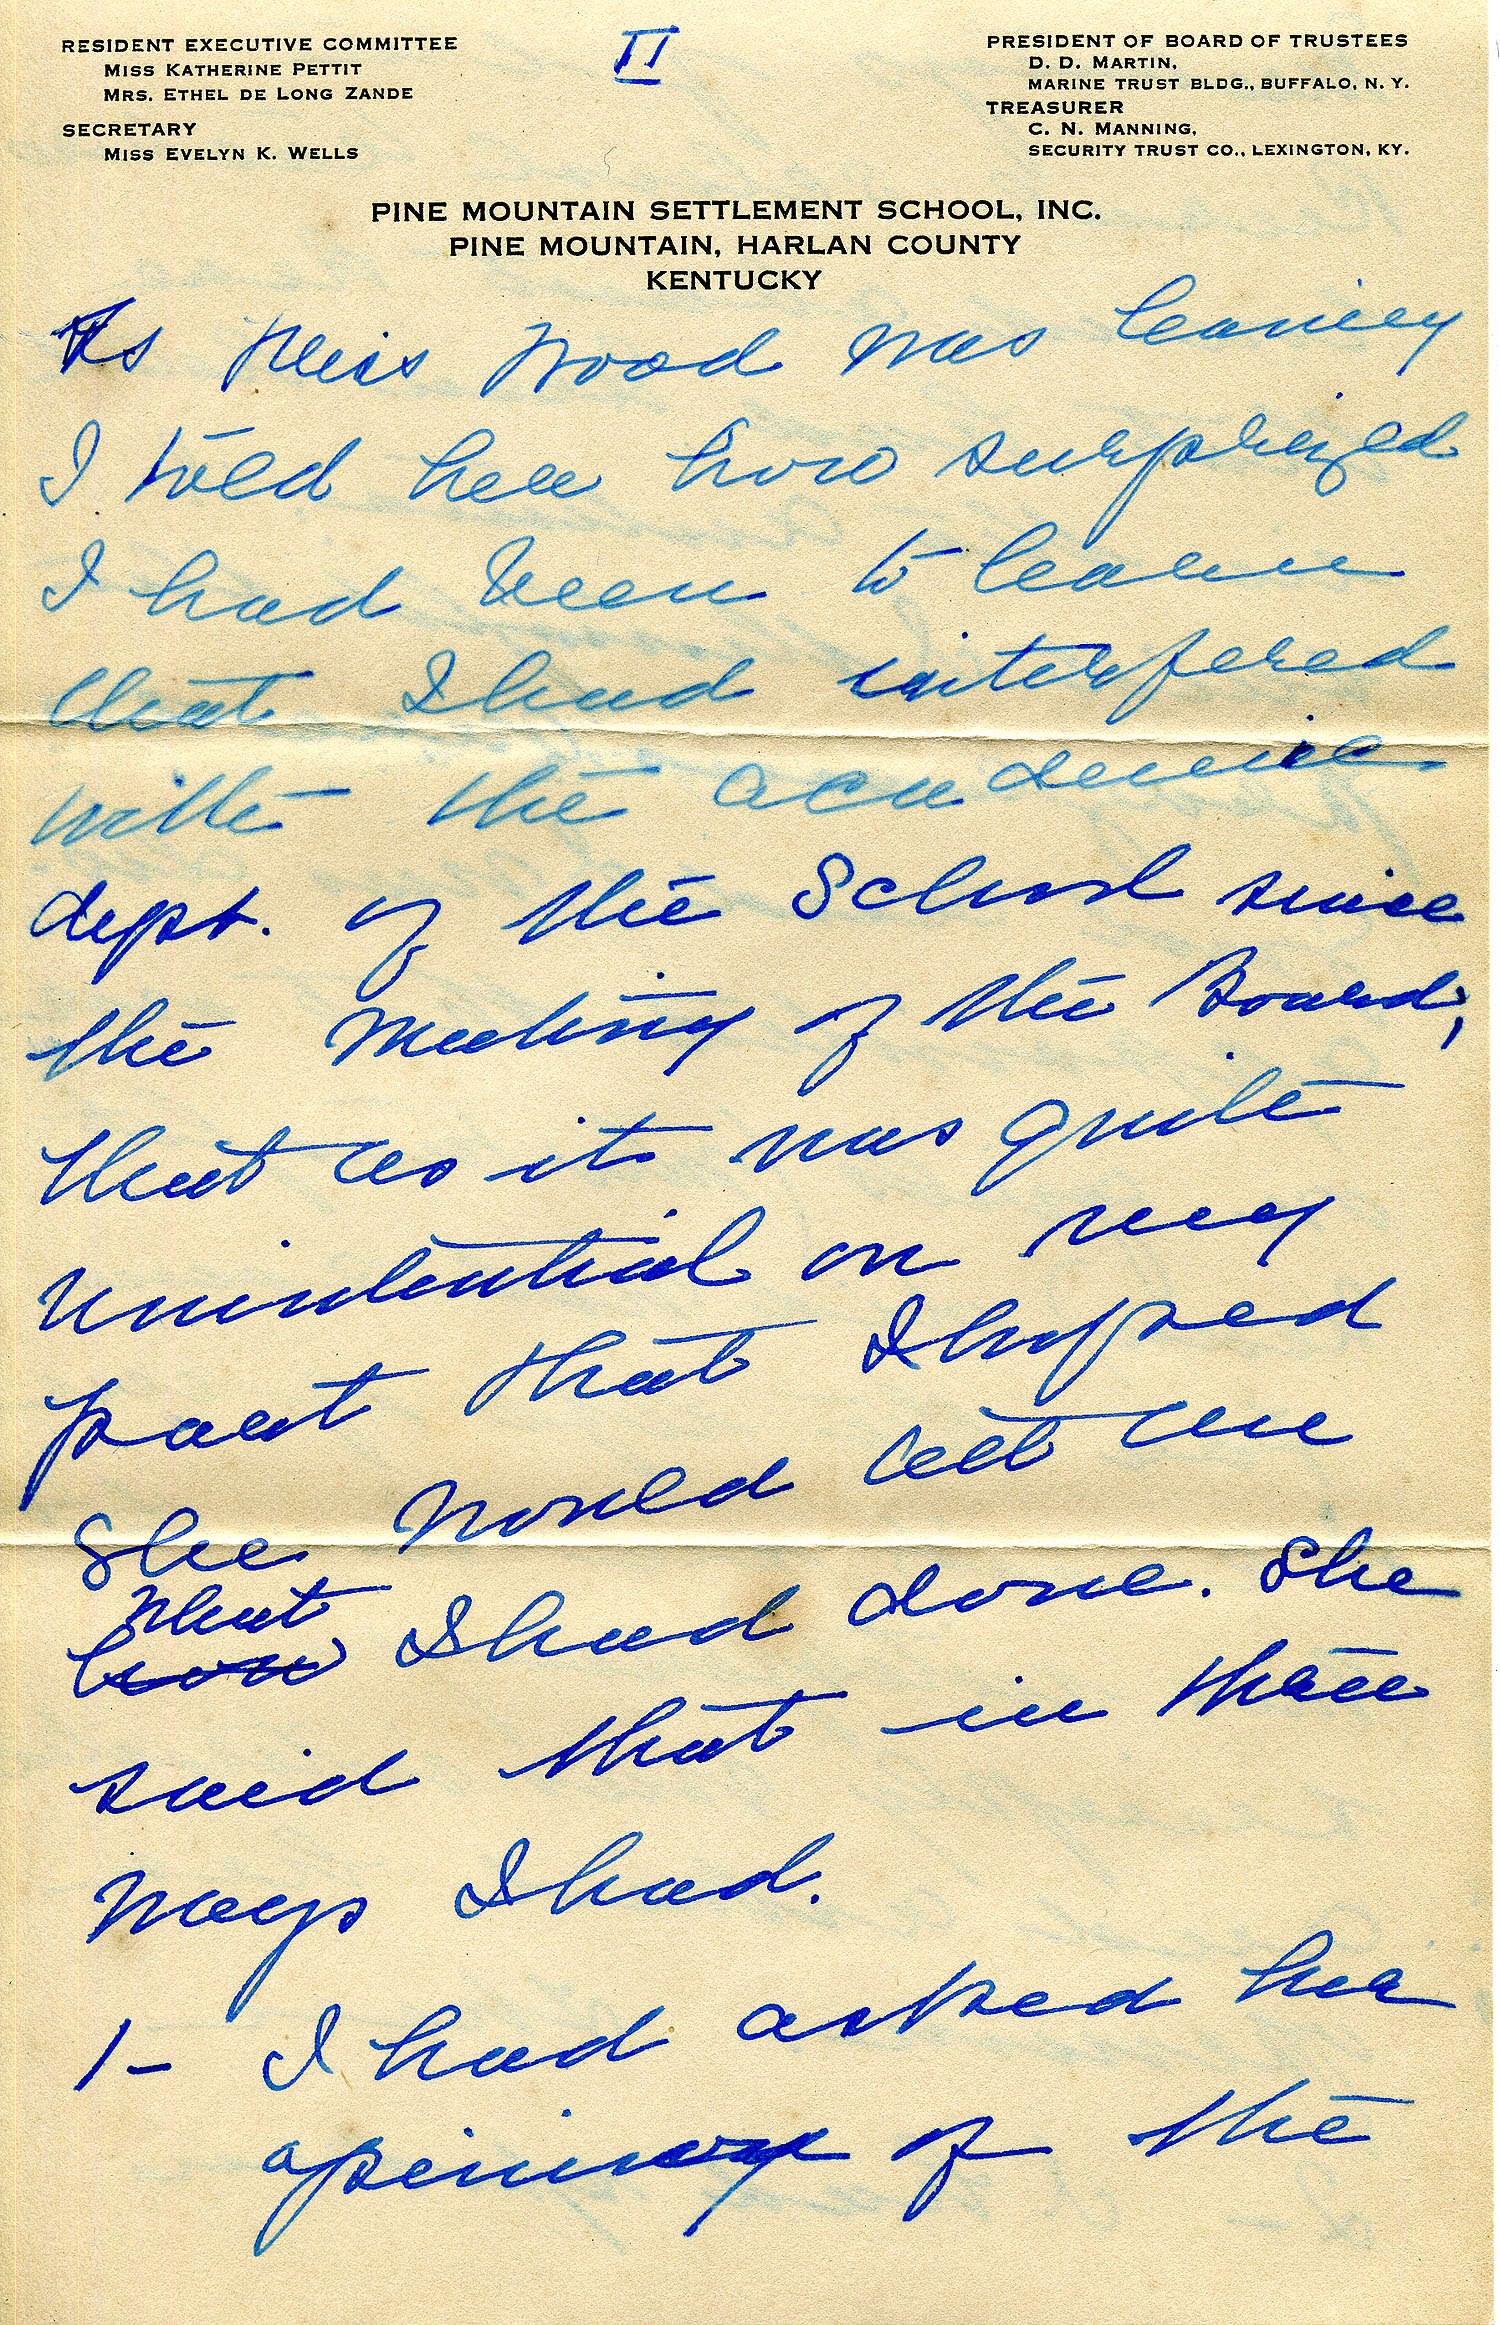 RESIDENT EXECUTIVE COMMITTEE
MISS KATHERINE PETTIT
MRS. ETHEL DE LONG ZANDE
SECRETARY
MISS EVELYN K. WELLS
II
PRESIDENT OF BOARD OF TRUSTEES
D. D. MARTIN,
MARINE TRUST BLDG., BUFFALO, N. Y.
TREASURER
C. N. MANNING,
SECURITY TRUST CO., LEXINGTON, KY.
PINE MOUNTAIN SETTLEMENT SCHOOL, INC.
PINE MOUNTAIN, HARLAN COUNTY
KENTUCKY
As Miss Wood was leaving
I told her how surprized
I had been to learn
that I had interfered
with the academic
dept. of the School since
the meeting of the Board;
that as it was quite
unintential on my
part that I hoped
She would tell me
what
how I had done. She
said that in three
ways I had.
1- I had asked her
of the